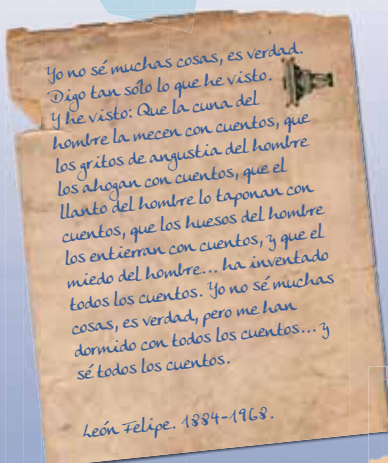 Yo no sé muchas cosas, es verdad.
Digo tan sólo lo que he visto.
Y he visto: Que la cuna del
hombre la mecen con cuentos, que
los gritos de angustia del hombre
los ahogan con cuentos, que el
llanto del hombre lo taponan con
cuentos, que los huesos del hombre
los entierran con cuentos, y que el
miedo del hombre... ha inventado
todos los cuentos. Yo no sé muchas
cosas, es verdad, pero me han
dormido con todos los cuentos... y
sé todos los cuentos.
León Felipe. 1884-1968.